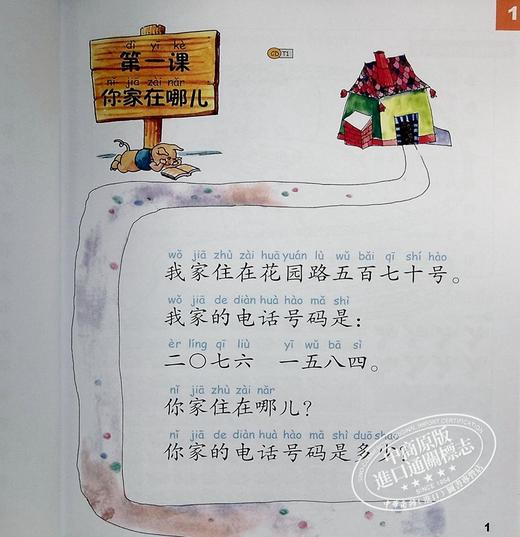 1
dì yī kè
第一课
nǐ jiā zài nǎr
你家在哪儿
CD T1
wǒ jiā zhù zài huā yuán lù wǔ bǎi qī shí hào
我家住在花园路五百七十号。
wǒ jiā de diàn huà hào mǎ shì
我家的电话号码是：
èr líng qī liù yī wǔ bā sì
二〇七六 一五八四。
nǐ jiā zhù zài nǎr
你家住在哪儿？
nǐ jiā de diàn huà hào mǎ shì duō shao
你家的电话号码是多少
中商原版
進口通關標志
1